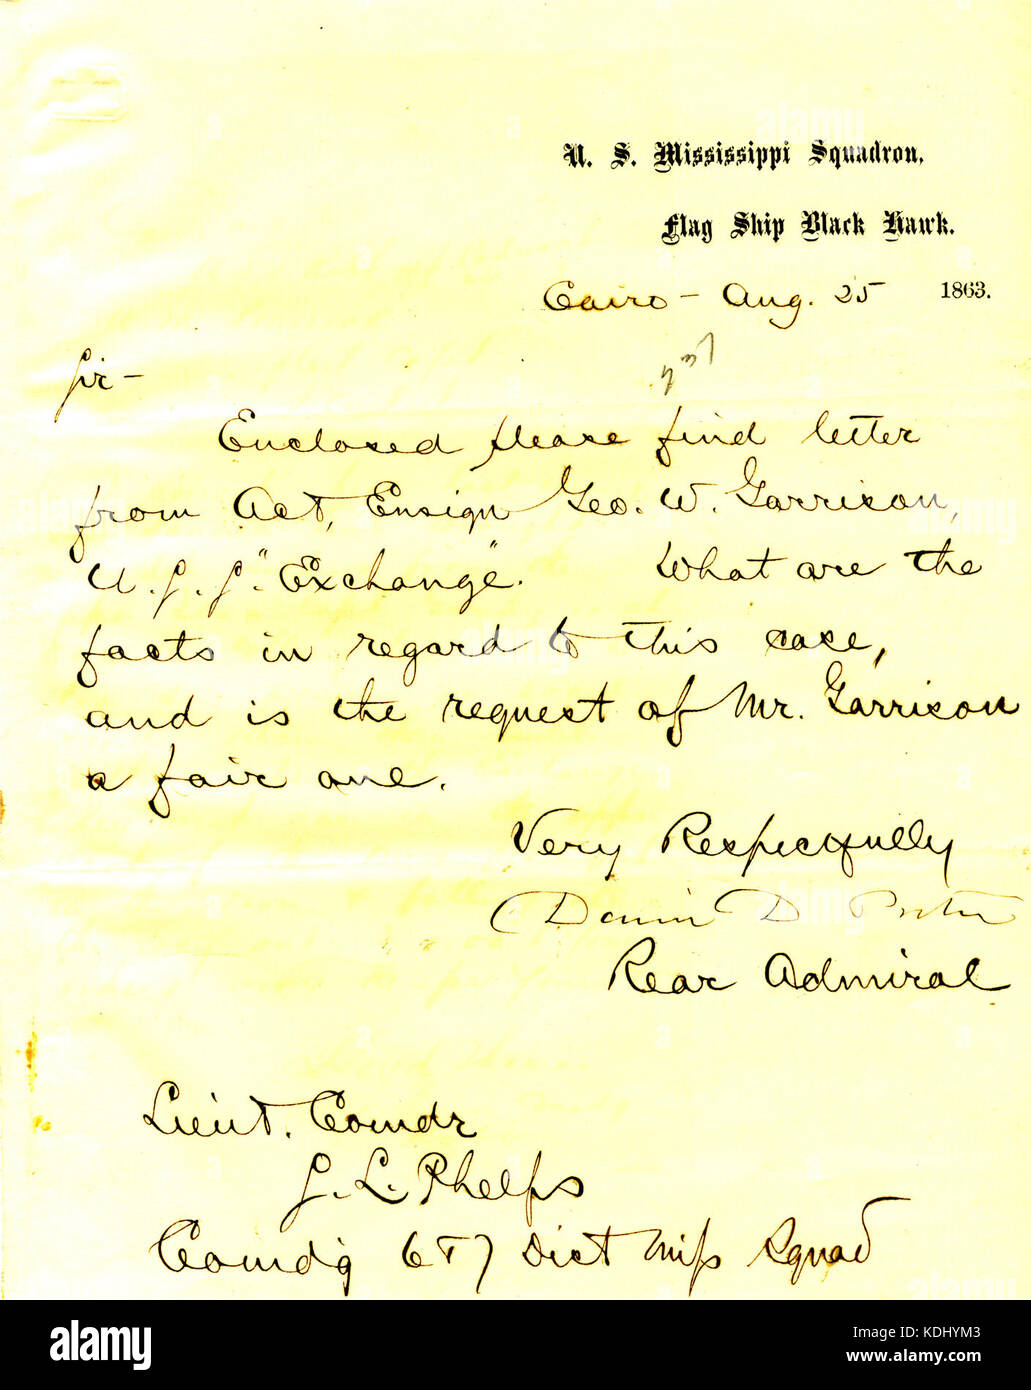 U. S. Mississippi Squadron,
Flag Ship Black Hawk.
Cairo - Aug. 25 1863.
Sir -
Enclosed please find letter
from Act, Ensign Geo. W. Garrison,
U.S.S. "Exchange". What are the
facts in regard to this case,
and is the request of Mr. Garrison
a fair one.
Very Respectfully
David D Porter
Rear Admiral
Lieut. Comdr
S. L. Phelps
Comdg 6 & 7 Dist Miss Squad
alamy
Image ID: KDHYM3
www.alamy.com